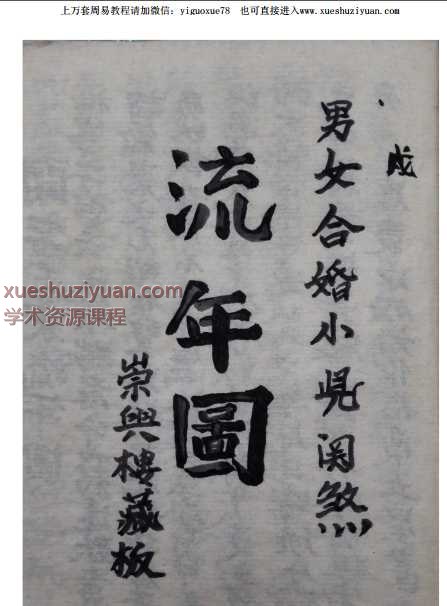 上万套周易教程请加微信：yiguoxue78 也可直接进入www.xueshuziyuan.com
戊
男女合婚小児関煞
流年圖
崇興樓藏板
xueshuziyuan.com
学术资源课程